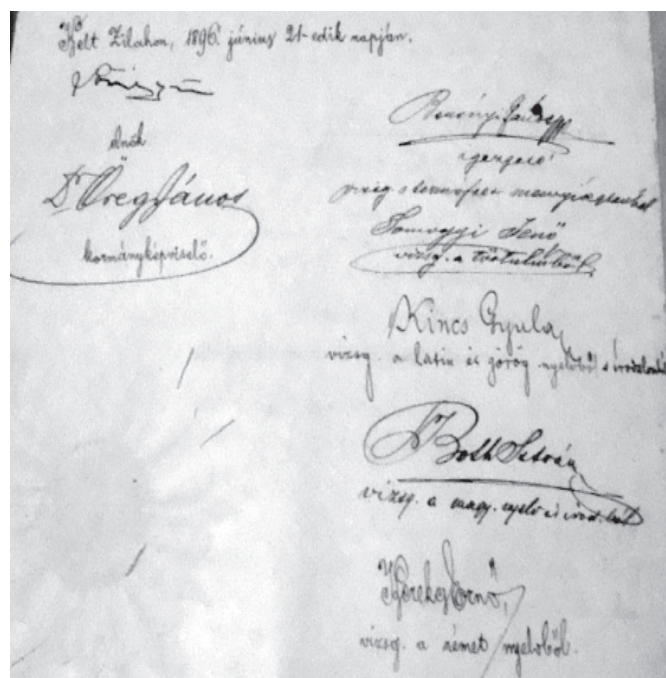 Kelt Zilahon, 1896. június 21-edik napján.
elnök
Dr Öreg János
kormányképviselő.
igazgató
vizsg. a természettan mennyiségtanból
Somogyi Jenő
vizsg. a történelemből
Kincs Gyula
vizsg. a latin és görög nyelvből s irodalomból
Both István
vizsg. a magy. nyelv és irod.ból
Kerekes Ernő,
vizsg. a német nyelvből.